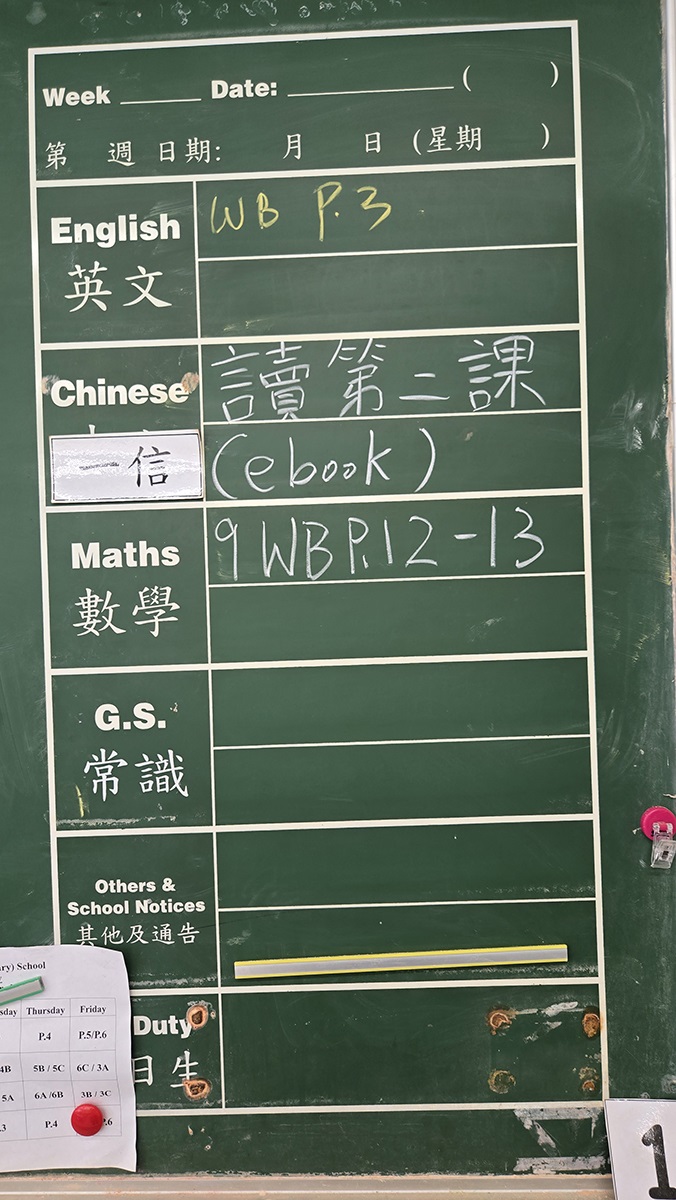 Week ____ Date: ________ ( )
第 週 日期: 月 日 (星期 )
English
英文
WB P.3
Chinese
一信
讀第二課
(ebook)
Maths
數學
9 WB P.12-13
G.S.
常識
Others &
School Notices
其他及通告
Duty
日生
ary) School
sday Thursday Friday
P.4 P.5/P.6
4B 5B / 5C 6C / 3A
5A 6A /6B 3B / 3C
.3 P.4 .6
1